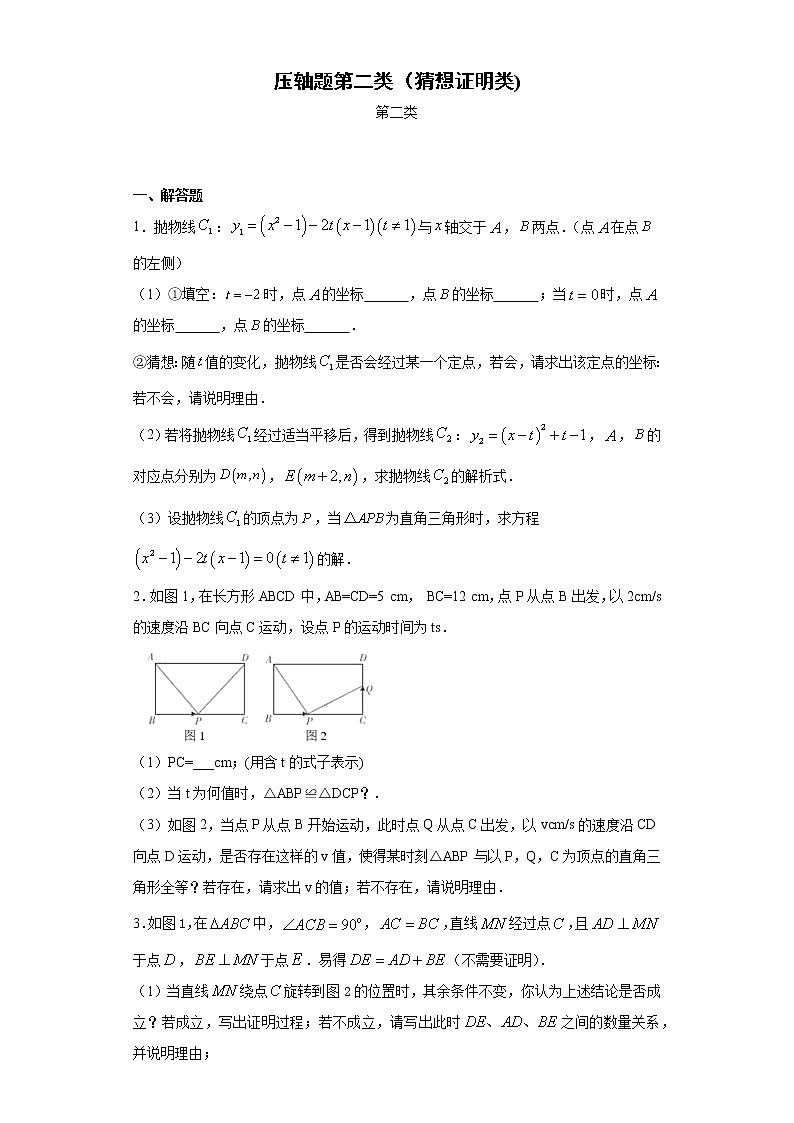 压轴题第二类（猜想证明类)
第二类
一、解答题
1．抛物线C₁：y₁=(x²−1)−2t(x−1)(t≠1)与x轴交于A，B两点.（点A在点B
的左侧）
（1）①填空：t=−2时，点A的坐标______，点B的坐标______；当t=0时，点A
的坐标______，点B的坐标______．
②猜想:随t值的变化，抛物线C₁是否会经过某一个定点，若会，请求出该定点的坐标：
若不会，请说明理由．
（2）若将抛物线C₁经过适当平移后，得到抛物线C₂：y₂=(x−t)²+t−1，A，B的
对应点分别为D(m,n)，E(m+2,n)，求抛物线C₂的解析式．
（3）设抛物线C₁的顶点为P，当△APB为直角三角形时，求方程
(x²−1)−2t(x−1)=0(t≠1)的解．
2．如图1,在长方形ABCD中,AB=CD=5 cm， BC=12 cm,点P从点B出发,以2cm/s
的速度沿BC向点C运动，设点P的运动时间为ts．
A D B P C
A D Q B P C
图1 图2
（1）PC=___cm；(用含t的式子表示)
（2）当t为何值时，△ABP≌△DCP？．
（3）如图2，当点P从点B开始运动，此时点Q从点C出发，以vcm/s的速度沿CD
向点D运动，是否存在这样的v值，使得某时刻△ABP与以P，Q，C为顶点的直角三
角形全等？若存在，请求出v的值；若不存在，请说明理由．
3.如图1,在ΔABC中，∠ACB=90°，AC=BC,直线MN经过点C,且AD⊥MN
于点D，BE⊥MN于点E．易得DE=AD+BE（不需要证明）．
（1）当直线MN绕点C旋转到图2的位置时，其余条件不变，你认为上述结论是否成
立？若成立，写出证明过程；若不成立，请写出此时DE、AD、BE之间的数量关系，
并说明理由；